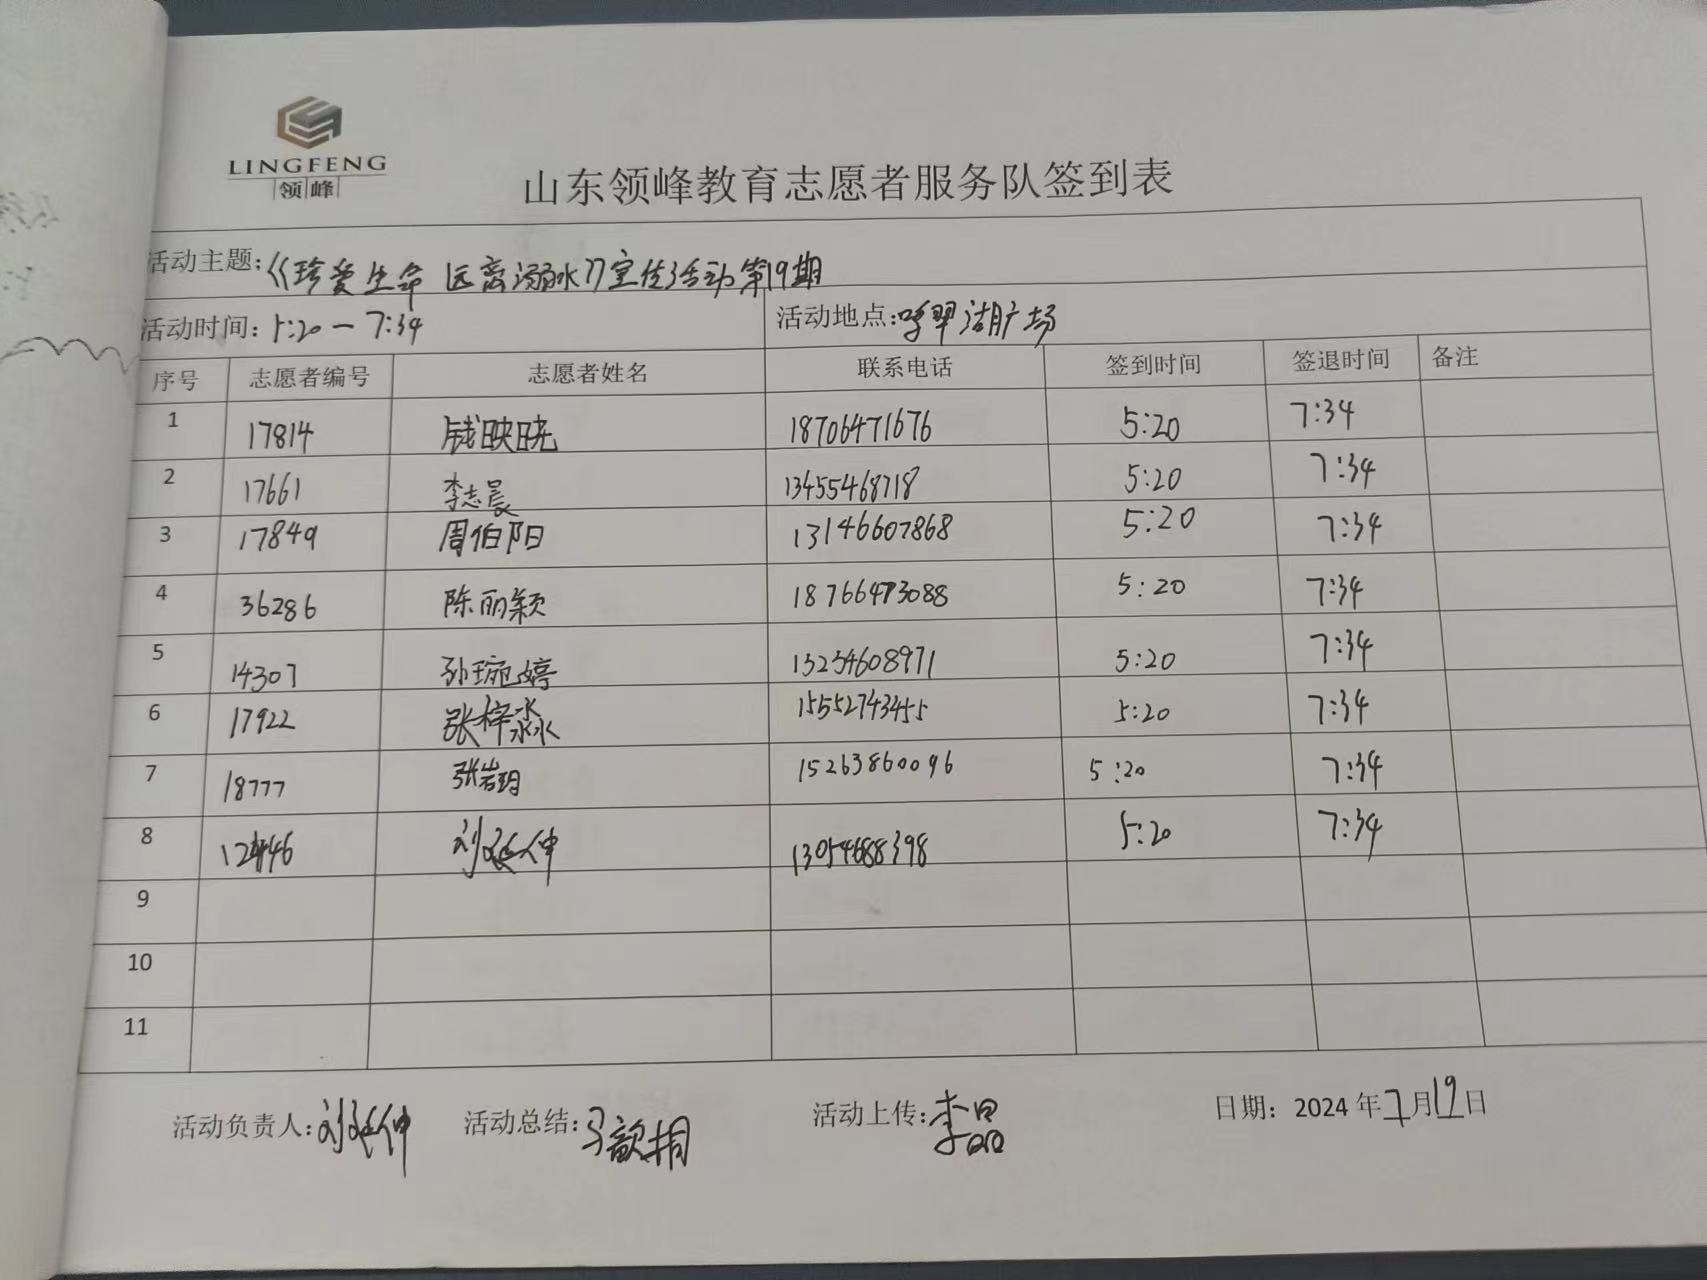 LINGFENG
领峰
山东领峰教育志愿者服务队签到表
活动主题:《珍爱生命 远离溺水》宣传活动第19期
活动时间:5:20—7:34 活动地点:鸣翠湖广场
序号 志愿者编号 志愿者姓名 联系电话 签到时间 签退时间 备注
1 17814 钱映晓 18706471676 5:20 7:34
2 17661 李志晨 13455468718 5:20 7:34
3 17849 周伯阳 13146607868 5:20 7:34
4 36286 陈丽颖 18766473088 5:20 7:34
5 14307 孙琬婷 15254608971 5:20 7:34
6 17922 张梓淼 15552743455 5:20 7:34
7 18777 张岩玥 15263860096 5:20 7:34
8 12446 刘延仲 13054688398 5:20 7:34
9
10
11
活动负责人:刘延仲 活动总结:马歆桐 活动上传:李晶 日期:2024年7月19日